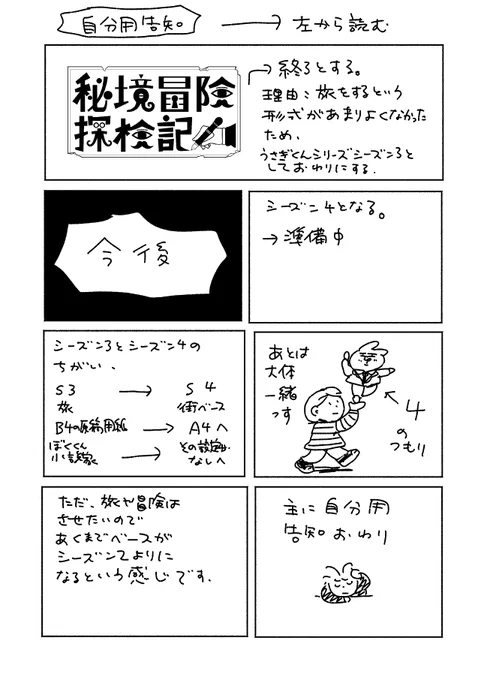 自分用告知。
左から読む
秘境冒険
探検記
終了とする。
理由:旅をするという
形式があまりよくなかった
ため、
うさぎくんシリーズシーズン3と
しておわりにする.
今後
シーズン4となる。
→準備中
シーズン3とシーズン4の
ちがい、
S3 → S4
旅 街ベース
B4の原稿用紙 → A4へ
ぼくくん
小説家 → その設定
なしへ
あとは
大体
一緒
っす
4
の
つもり
ただ、旅や冒険は
させたいので
あくまでベースが
シーズン2よりに
なるという感じです.
主に自分用
告知おわり